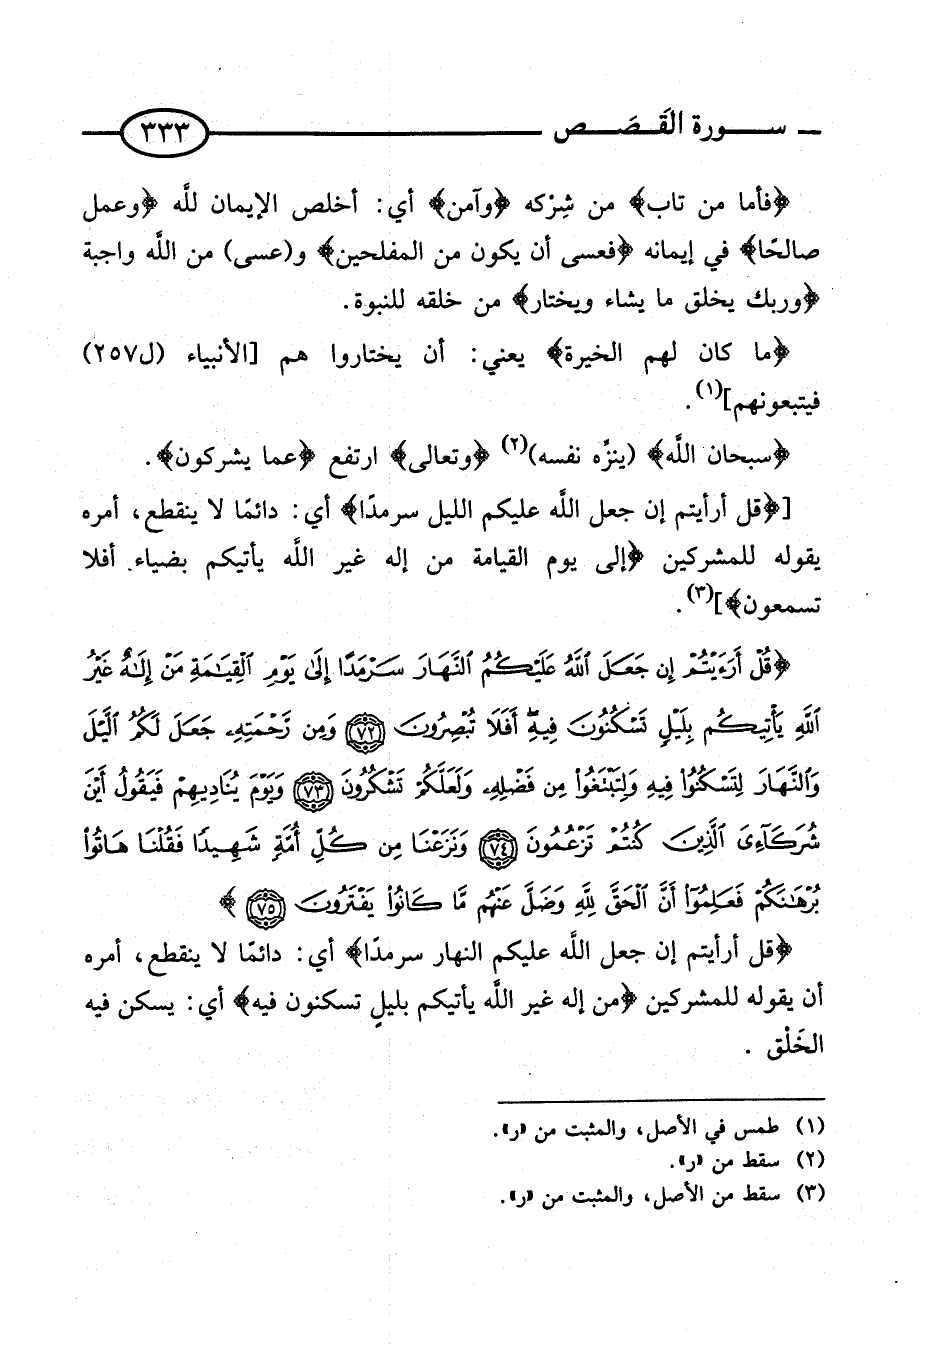 سورة القَصَص ٣٣٣
﴿فأما من تاب﴾ من شِرْكه ﴿وآمن﴾ أي: أخلص الإيمان للَّه ﴿وعمل
صالحًا﴾ في إيمانه ﴿فعسى أن يكون من المفلحين﴾ و(عسى) من اللَّه واجبة
﴿وربك يخلق ما يشاء ويختار﴾ من خلقه للنبوة.
﴿ما كان لهم الخيرة﴾ يعني: أن يختاروا هم [الأنبياء (ل٢٥٧)
فيتبعونهم](١).
﴿سبحان اللَّه﴾ (ينزِّه نفسه)(٢) ﴿وتعالى﴾ ارتفع ﴿عما يشركون﴾.
[﴿قل أرأيتم إن جعل اللَّه عليكم الليل سرمدًا﴾ أي: دائمًا لا ينقطع، أمره
يقوله للمشركين ﴿إلى يوم القيامة من إله غير اللَّه يأتيكم بضياء. أفلا
تسمعون﴾](٣).
﴿قُلْ أَرَءَيْتُمْ إِن جَعَلَ اللَّهُ عَلَيْكُمُ النَّهَارَ سَرْمَدًا إِلَىٰ يَوْمِ الْقِيَٰمَةِ مَنْ إِلَٰهٌ غَيْرُ
اللَّهِ يَأْتِيكُم بِلَيْلٍ تَسْكُنُونَ فِيهِ أَفَلَا تُبْصِرُونَ ﴿٧٢﴾ وَمِن رَّحْمَتِهِۦ جَعَلَ لَكُمُ الَّيْلَ
وَالنَّهَارَ لِتَسْكُنُوا۟ فِيهِ وَلِتَبْتَغُوا۟ مِن فَضْلِهِۦ وَلَعَلَّكُمْ تَشْكُرُونَ ﴿٧٣﴾ وَيَوْمَ يُنَادِيهِمْ فَيَقُولُ أَيْنَ
شُرَكَآءِىَ الَّذِينَ كُنتُمْ تَزْعُمُونَ ﴿٧٤﴾ وَنَزَعْنَا مِن كُلِّ أُمَّةٍ شَهِيدًا فَقُلْنَا هَاتُوا۟
بُرْهَٰنَكُمْ فَعَلِمُوٓا۟ أَنَّ الْحَقَّ لِلَّهِ وَضَلَّ عَنْهُم مَّا كَانُوا۟ يَفْتَرُونَ ﴿٧٥﴾﴾
﴿قل أرأيتم إن جعل اللَّه عليكم النهار سرمدًا﴾ أي: دائمًا لا ينقطع، أمره
أن يقوله للمشركين ﴿من إله غير اللَّه يأتيكم بليلٍ تسكنون فيه﴾ أي: يسكن فيه
الخَلْق.
(١) طمس في الأصل، والمثبت من «ر».
(٢) سقط من «ر».
(٣) سقط من الأصل، والمثبت من «ر».